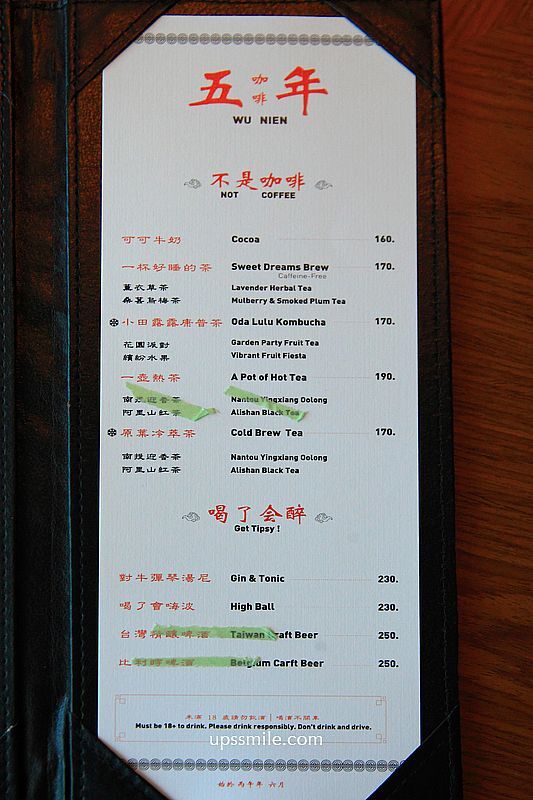 五 咖啡 年
WU NIEN
不是咖啡
NOT COFFEE
可可牛奶 Cocoa 160.
一杯好睡的茶 Sweet Dreams Brew 170.
Caffeine-Free
薰衣草茶 Lavender Herbal Tea
桑葚烏梅茶 Mulberry & Smoked Plum Tea
小田露露康普茶 Oda Lulu Kombucha 170.
花園派對 Garden Party Fruit Tea
繽紛水果 Vibrant Fruit Fiesta
一壺熱茶 A Pot of Hot Tea 190.
南投迎香茶 Nantou Yingxiang Oolong
阿里山紅茶 Alishan Black Tea
原葉冷萃茶 Cold Brew Tea 170.
南投迎香茶 Nantou Yingxiang Oolong
阿里山紅茶 Alishan Black Tea
喝了会醉
Get Tipsy !
對牛彈琴湯尼 Gin & Tonic 230.
喝了會嗨波 High Ball 230.
台灣精釀啤酒 Taiwan Craft Beer 250.
比利時啤酒 Belgium Carft Beer 250.
未滿 18 歲請勿飲酒｜喝酒不開車
Must be 18+ to drink. Please drink responsibly. Don't drink and drive.
upssmile.com
始於丙午年 六月